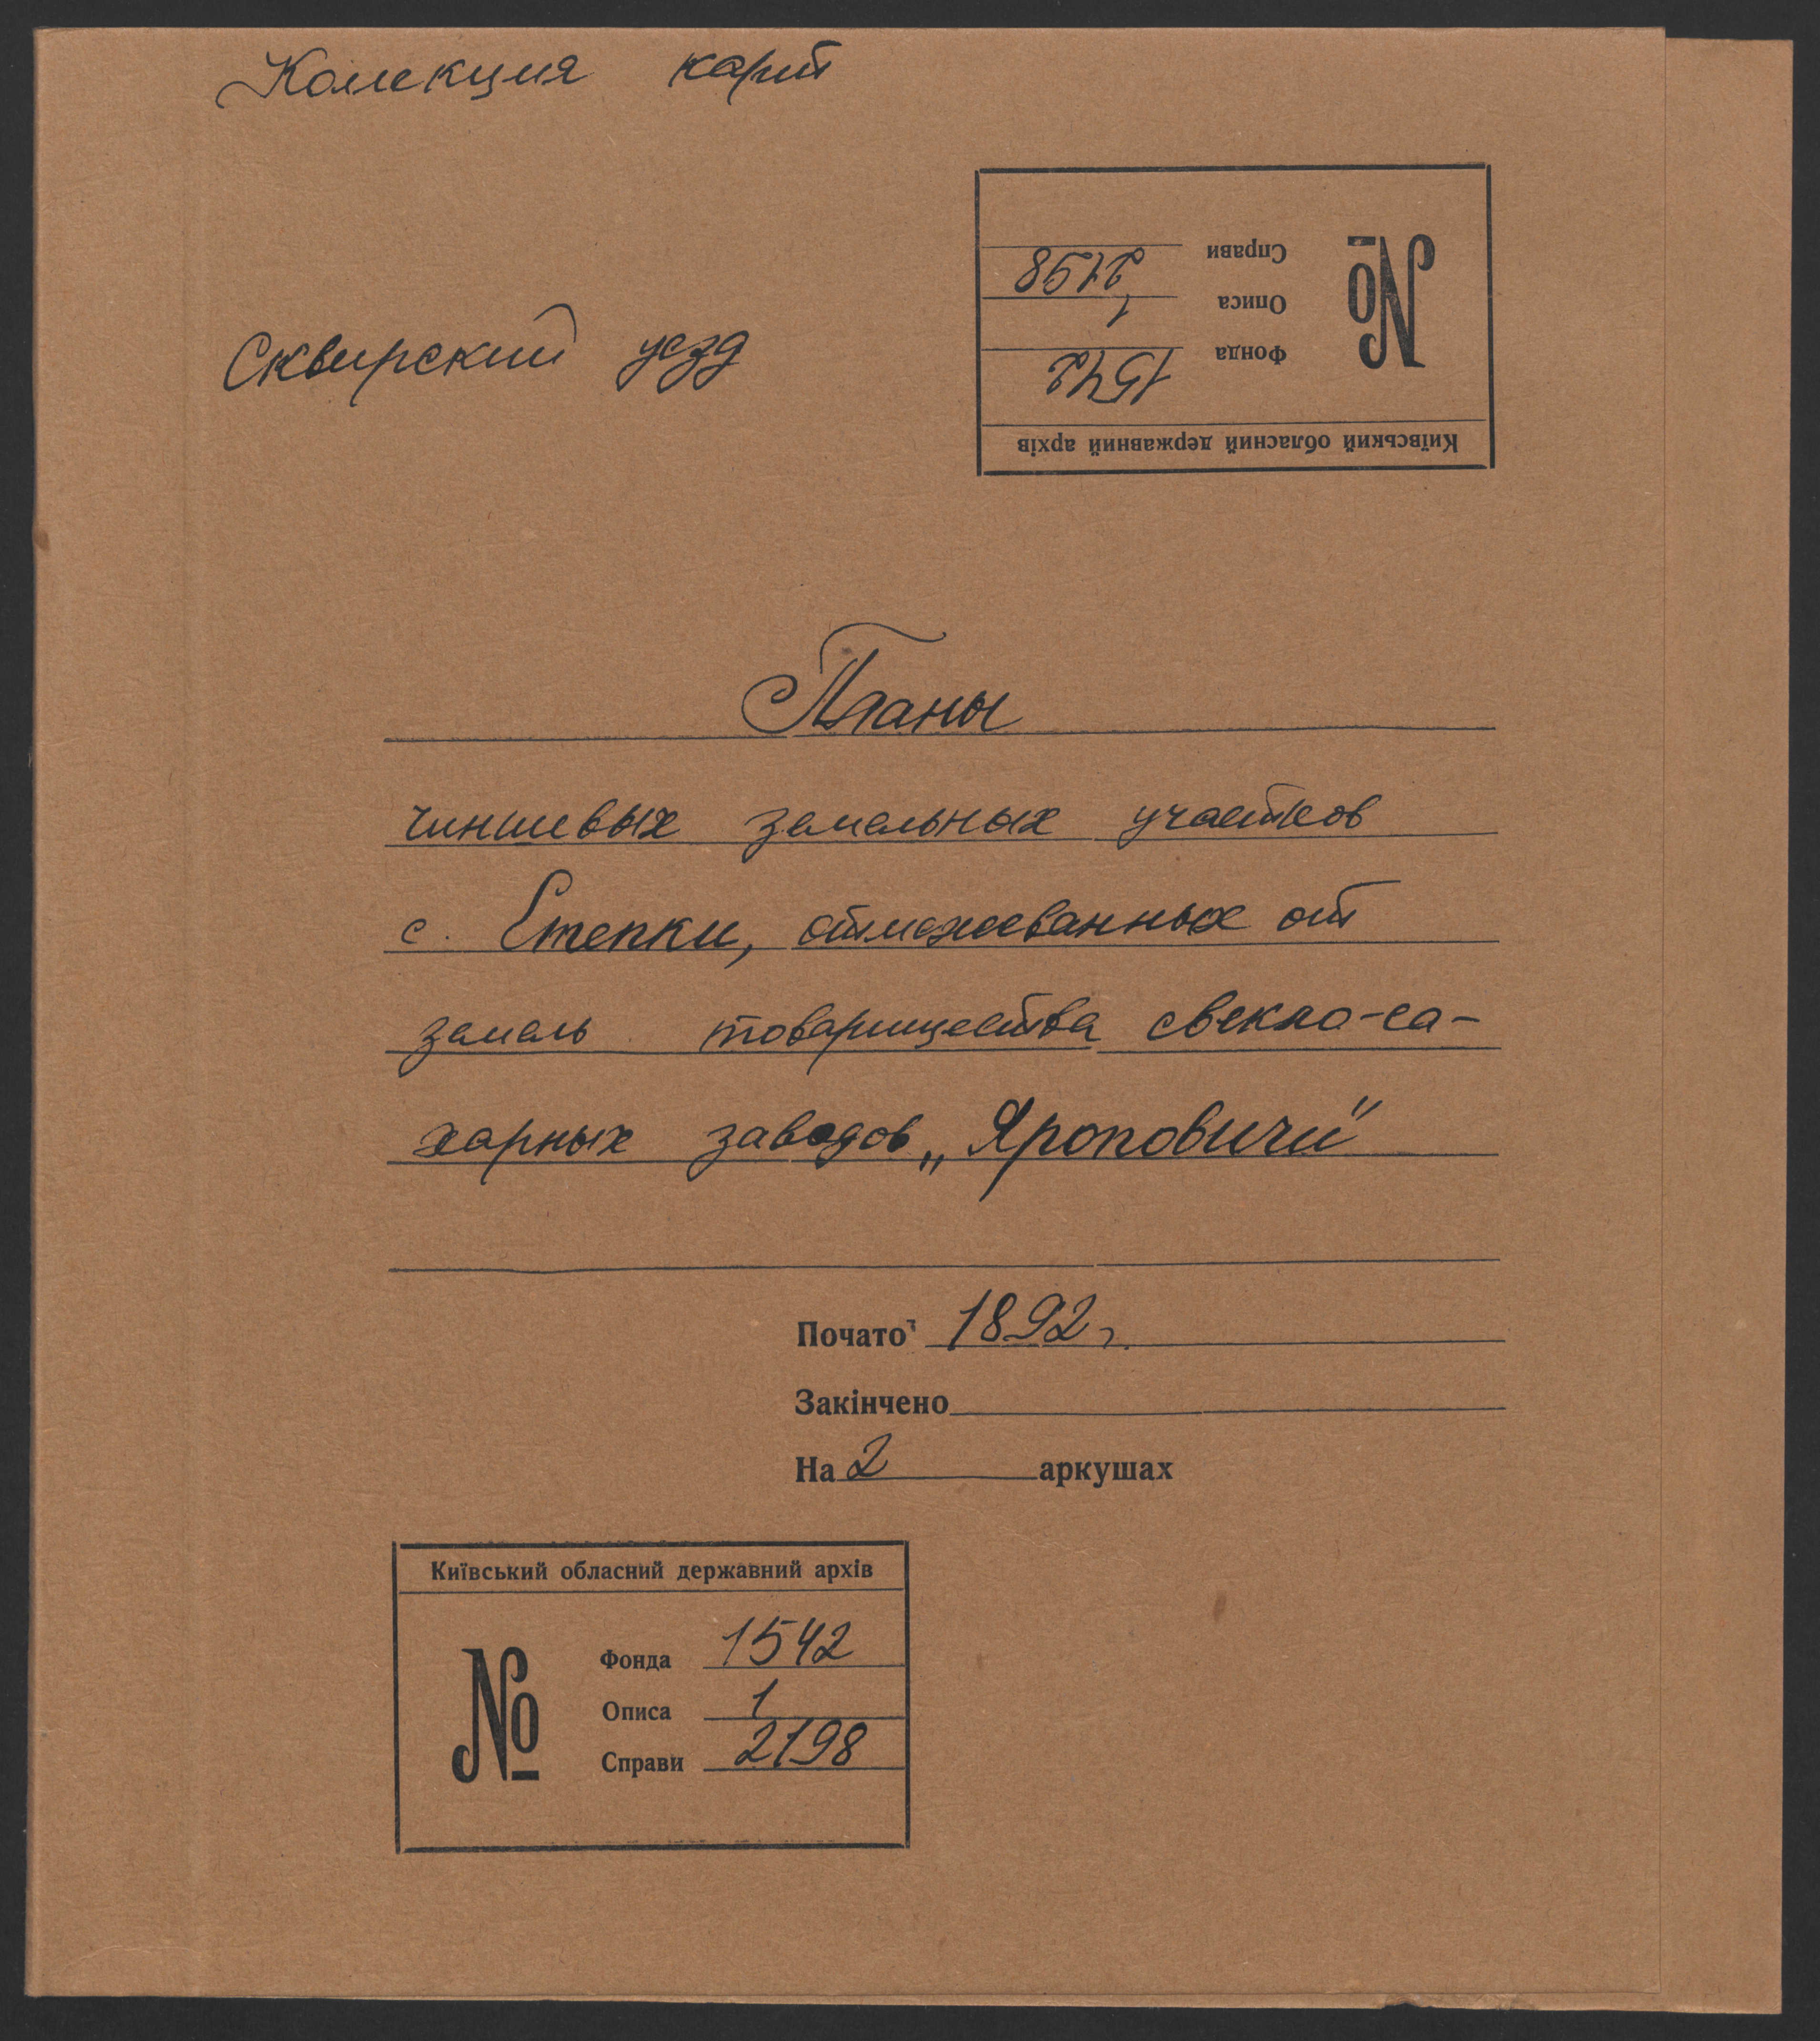 Колекция карт
Справи 2198
Описа 1
Фонда 1542
№
Київський обласний державний архів
Сквирский уезд
Планы
чиншевых земельных участков
с. Степки, отмежеванных от
земель товарищества свекло-са-
харных заводов „Яроповичи"
Почато 1892 г.
Закінчено
На 2 аркушах
Київський обласний державний архів
№
Фонда 1542
Описа 1
Справи 2198